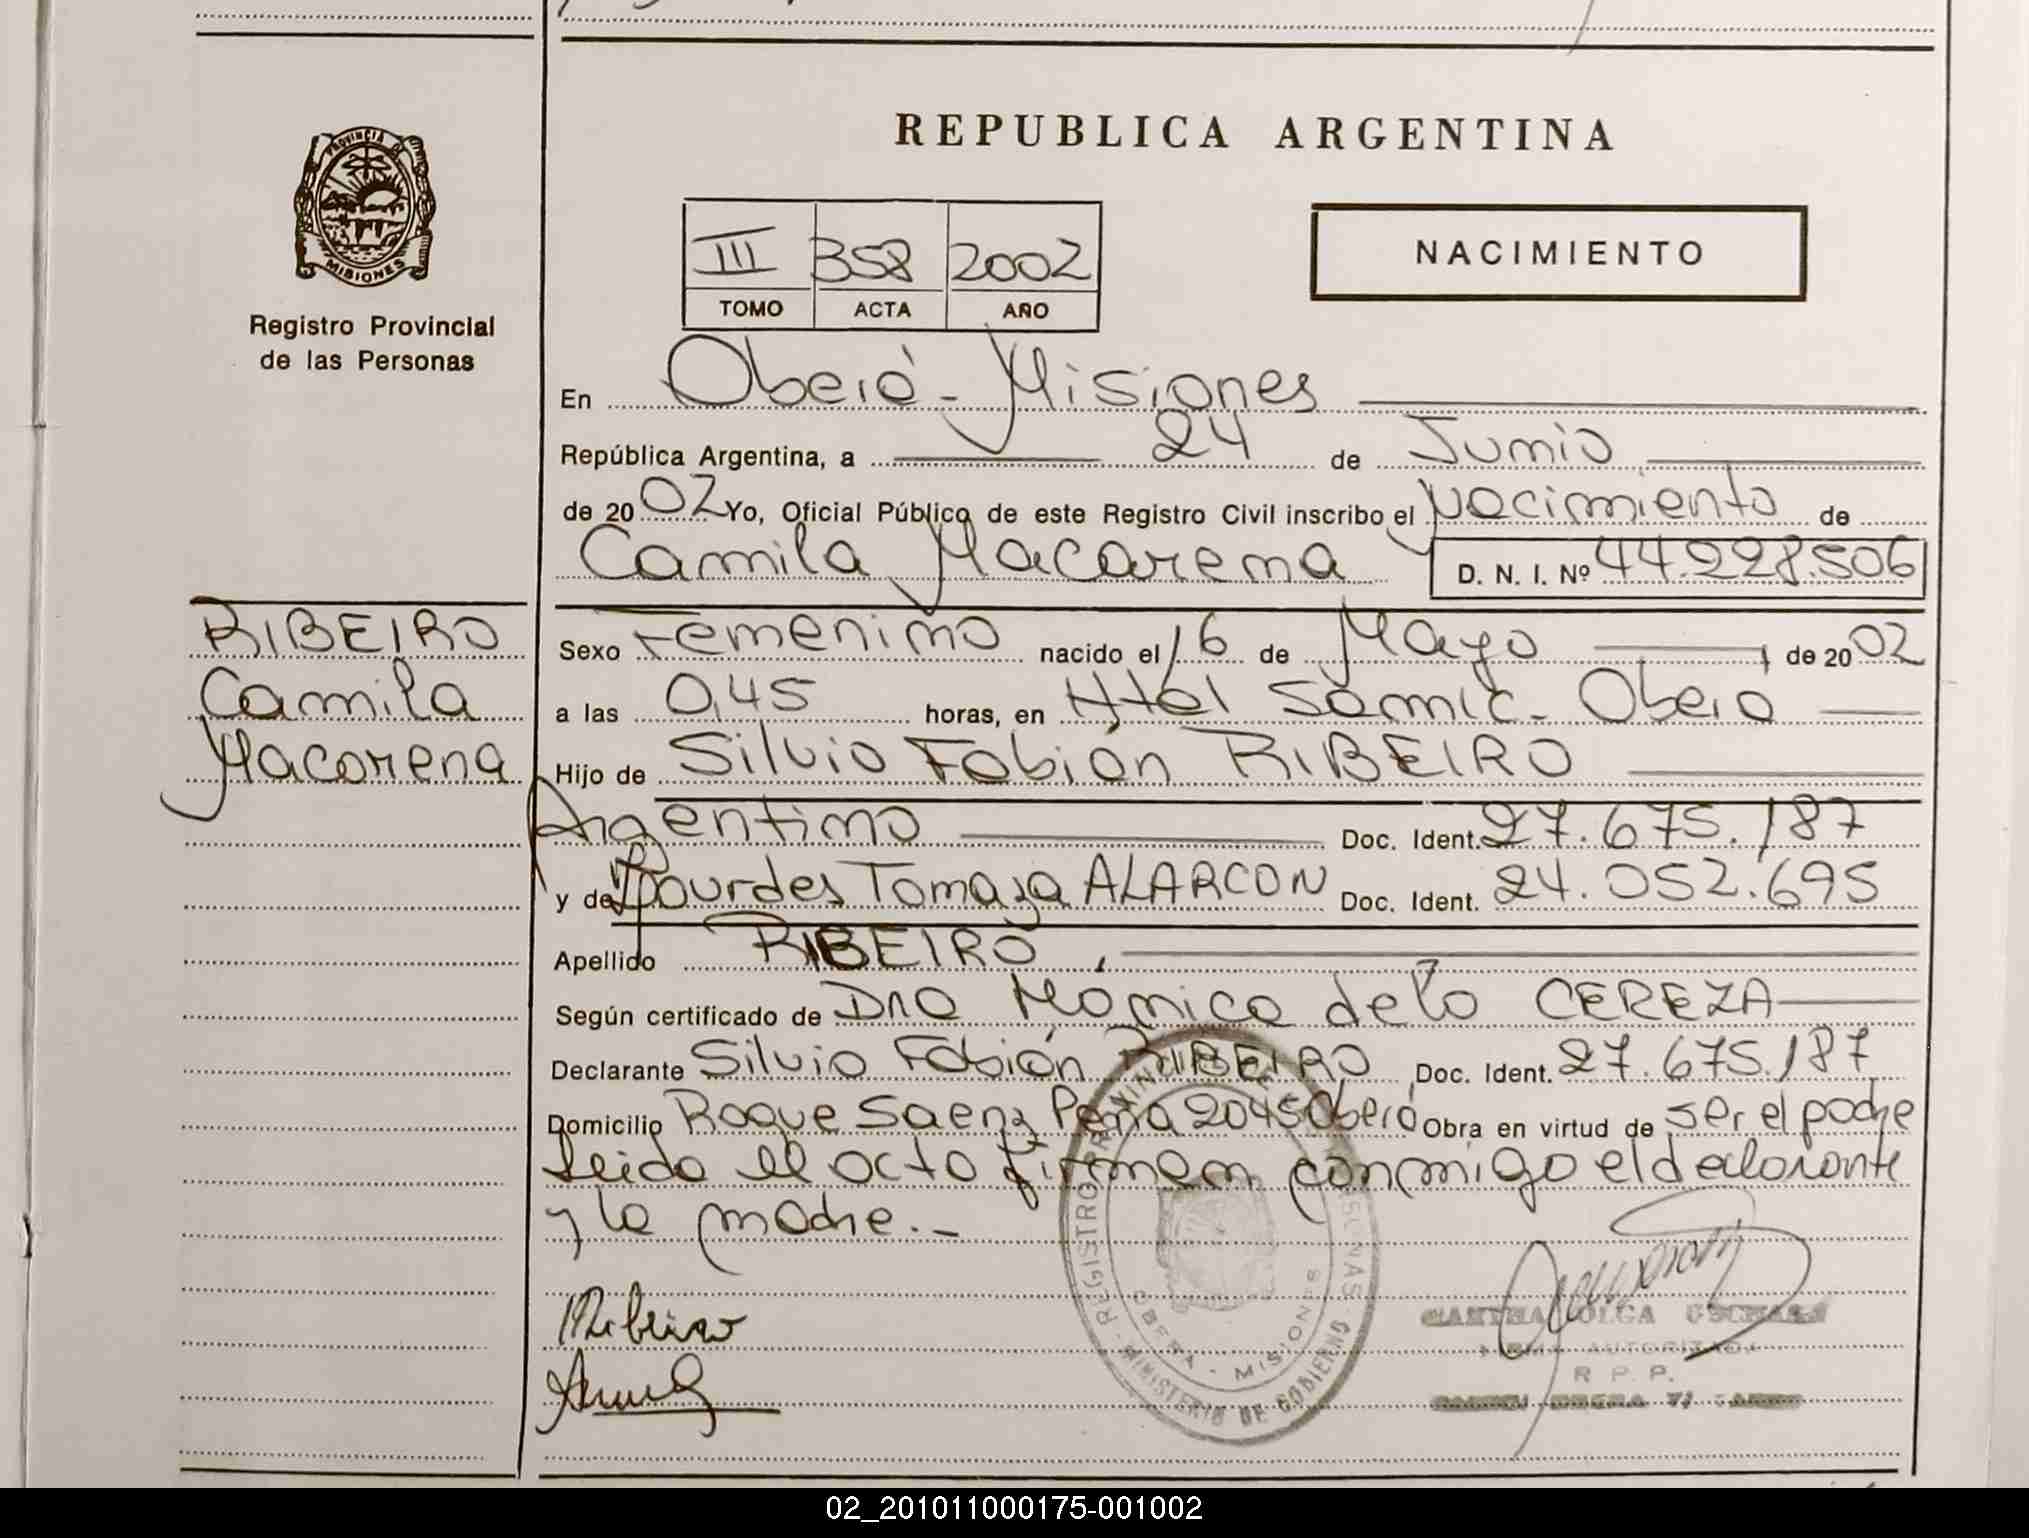 PROVINCIA DE
MISIONES
Registro Provincial
de las Personas
REPUBLICA ARGENTINA
III 358 2002
TOMO ACTA AÑO
NACIMIENTO
En Oberá - Misiones
República Argentina, a 24 de Junio
de 2002 Yo, Oficial Público de este Registro Civil inscribo el Nacimiento de
Camila Macarena D. N. I. Nº 44.228.506
RIBEIRO
Camila
Macarena
Sexo Femenino nacido el 16 de Mayo de 2002
a las 0,45 horas, en Htal Samic - Oberá
Hijo de Silvio Fabián RIBEIRO
Argentino Doc. Ident. 27.675.187
y de Lourdes Tomaza ALARCON Doc. Ident. 24.052.695
Apellido RIBEIRO
Según certificado de Dra Mónica de la CEREZA
Declarante Silvio Fabián RIBEIRO Doc. Ident. 27.675.187
Domicilio Roque Saenz Peña 2045 Oberá Obra en virtud de ser el padre
Leida el acta firman conmigo el declarante
y la madre.-
Ribeiro
REGISTRO PROVINCIAL DE LAS PERSONAS - MINISTERIO DE GOBIERNO
OBERA - MISIONES
OLGA
FIRMA AUTORIZADA
R. P. P.
02_201011000175-001002